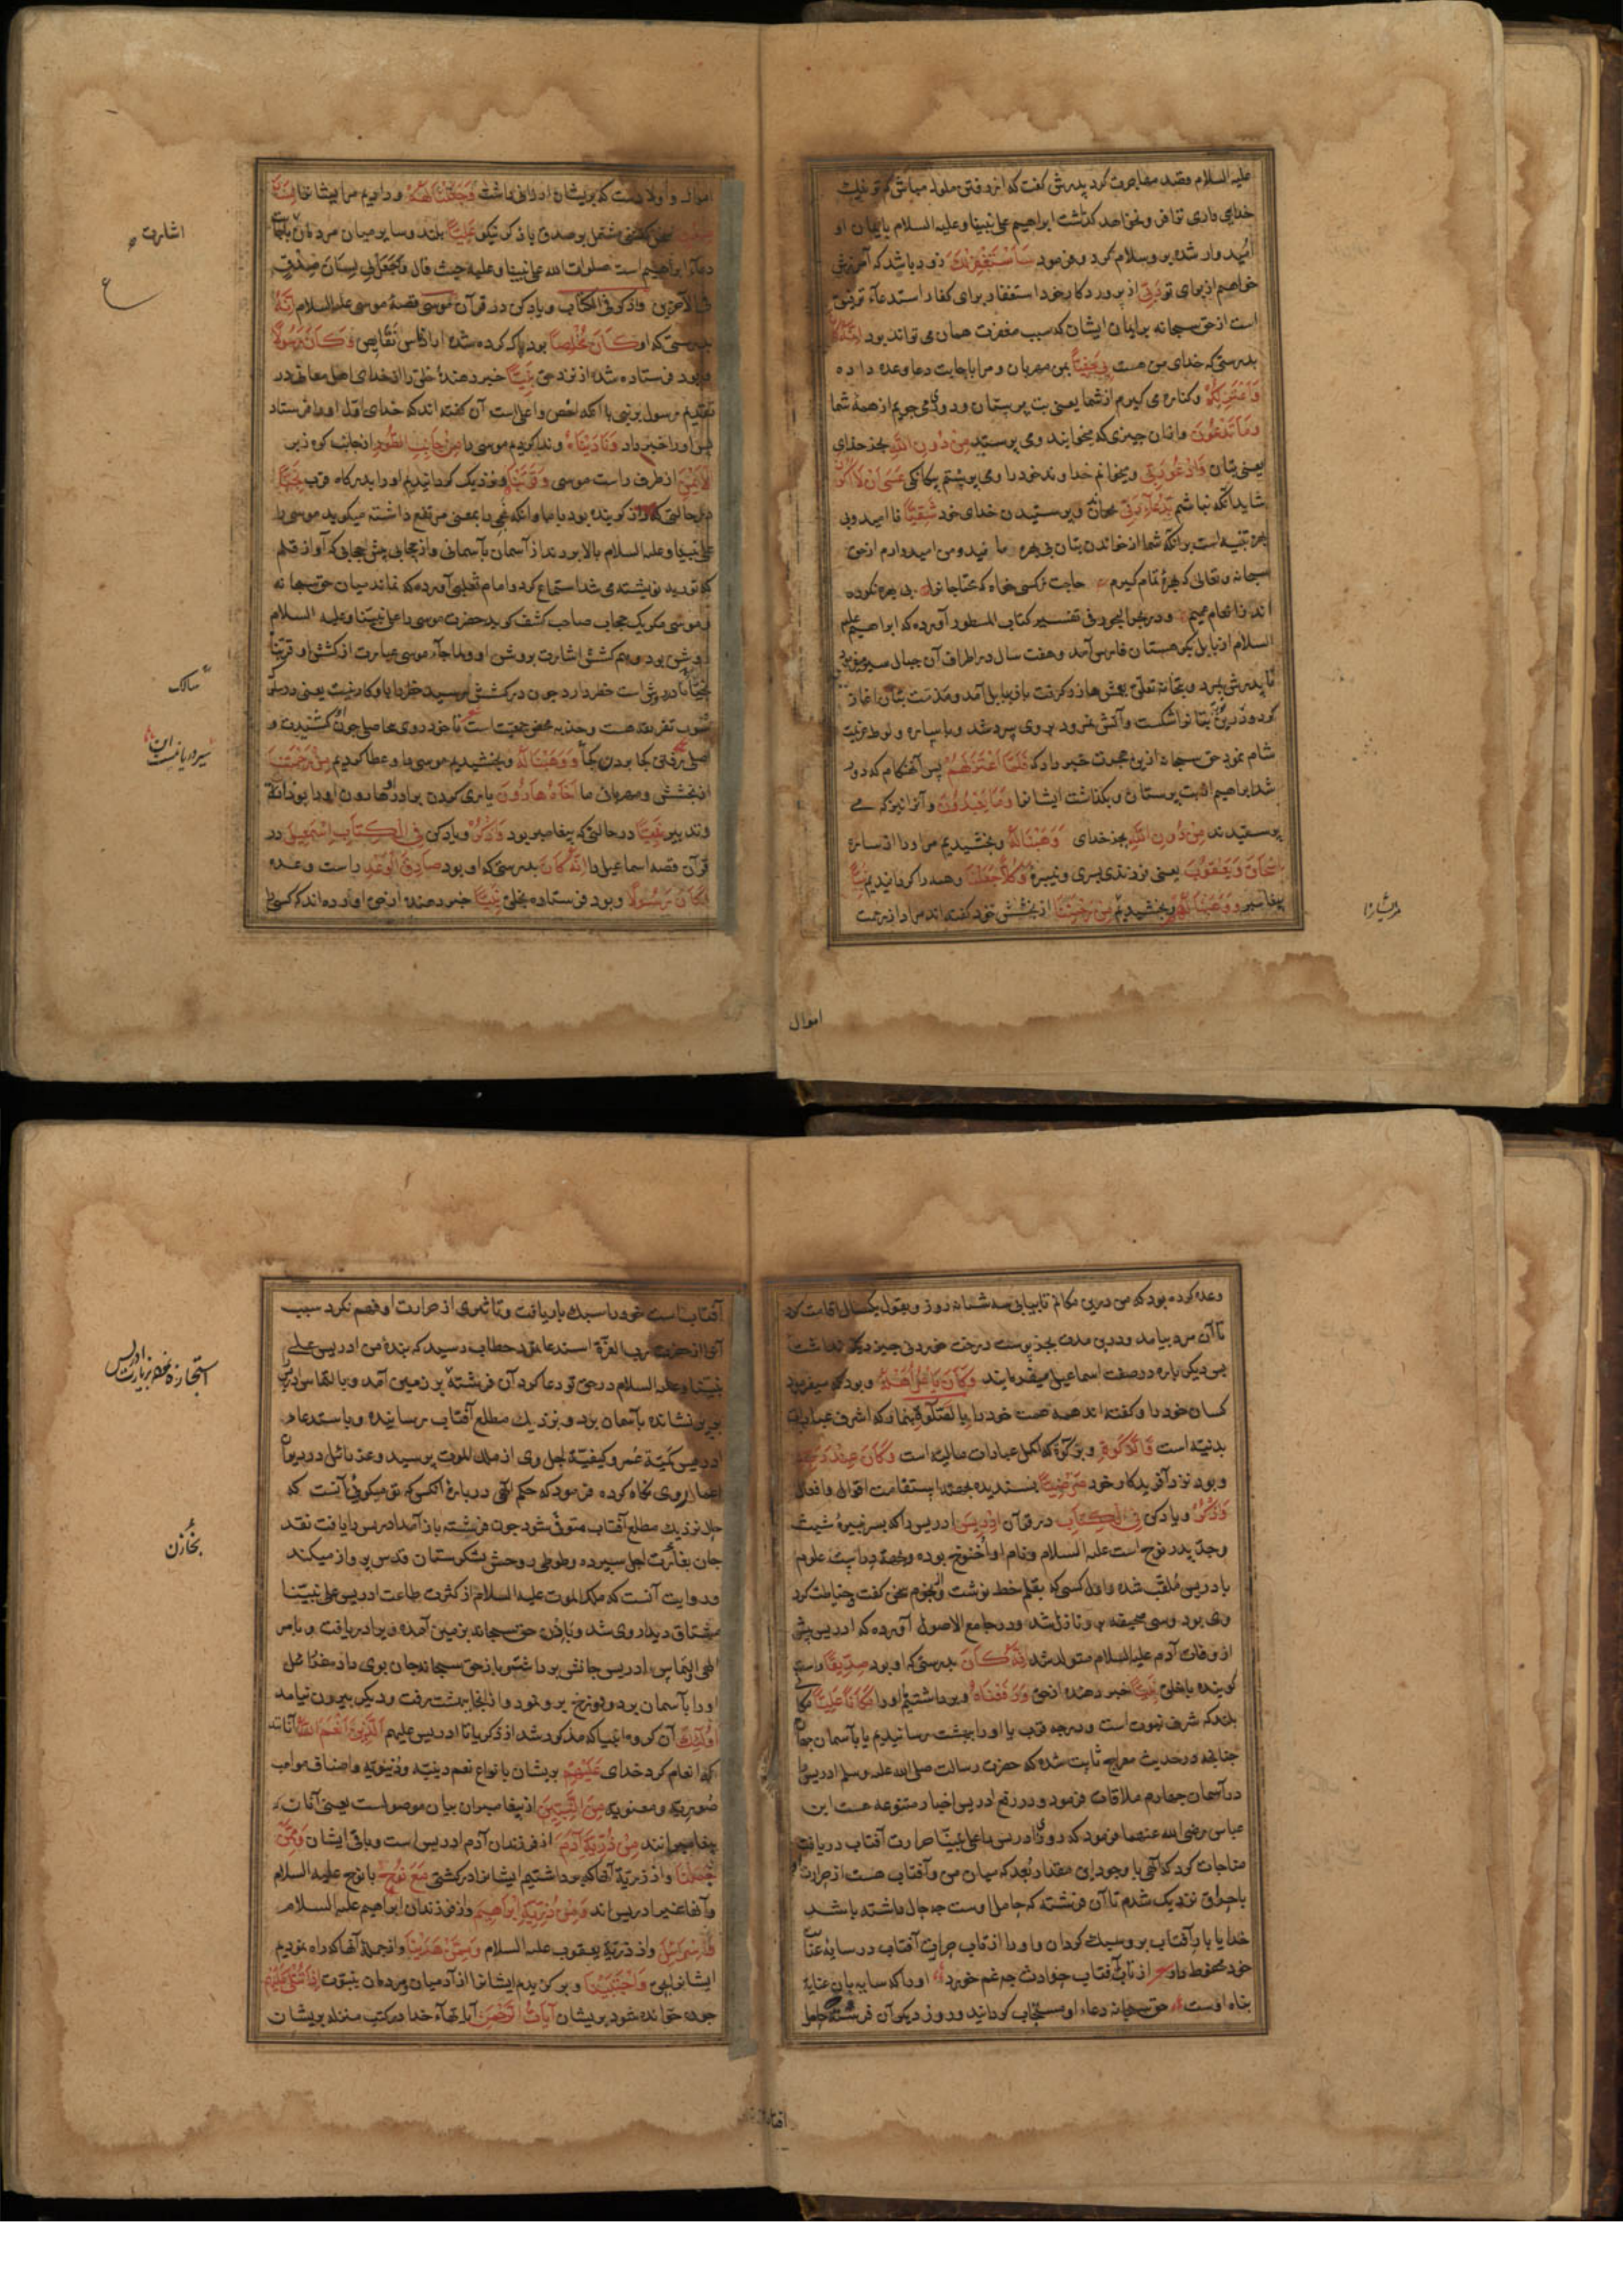 علیه السلام قصد مهاجرت کرد پدرش گفت که از رفتن ملول مباش که تو غریب
خدایی داری توانا و نخواهد گذاشت ابراهیم علی نبینا وعلیه السلام بایمان او
امیدوار شده برو سلام کرد و فرمود سَاَسْتَغْفِرُ لَكَ زود باشد که آمرزش
خواهم از برای تو رَبّی از پروردکار خود استغفار برای کفار استدعاء توفیق
است از حق سبحانه برایمان ایشان که سبب مغفرت همان می تواند بود اِنَّهُ كَانَ
بدرستی که خدای من هست بِی حَفِیّاً بمن مهربان و مرا باجابت دعا وعده داده
وَاَعْتَزِلُكُمْ وکناره می کیرم از شما یعنی بت پرستان و دوری می جویم از همهٔ شما
وَمَا تَدْعُونَ وازان چیزی که میخوانید ومی پرستید مِنْ دُونِ اللهِ بجز خدای
یعنی بتان وَاَدْعُو رَبّی ومیخوانم خداوند خود را ومی پرستم بیکانکی عَسَی اَنْ لَا اَکُونَ
شاید آنکه نباشم بِدُعَاءِ رَبّی بخواندن و پرستیدن خدای خود شَقِیّاً نا امید و بی
بهره تنبیه است برآنکه شما از خواندن بتان بی بهره ماندید و من امیدوارم از حق
سبحانه وتعالی که بهرهٔ تمام کیرم حاجت زکسی خواه که محتاجانرا بی بهره نکرده
اند از انعام عمیم و در بحر البحور فی تفسیر کتاب المسطور آورده که ابراهیم علیه
السلام از بابل بکوهستان فارس آمد و هفت سال در اطراف آن جبال سیر میفرمود
تا پدرش بمرد وبتخانه تعلق بعمش هازر کرفت باز ببابل آمد و مذمت بتان اغاز
کرد و زرین بتانرا شکست وآتش نمرود بروی سرد شد وبا ساره و لوط عزیمت
شام نمود حق سبحانه از ین هجرت خبر داد که فَلَمَّا اعْتَزَلَهُمْ پس آنهنکام که دور
شد ابراهیم از بت پرستان و بکذاشت ایشانرا وَمَا یَعْبُدُونَ وآنرا نیز که می
پرستیدند مِنْ دُونِ اللهِ بجز خدای وَهَبْنَا لَهُ وبخشیدیم مر او را از ساره
اِسْحَاقَ وَیَعْقُوبَ یعنی فرزندی پسری و نبیره وَكُلّاً جَعَلْنَا وهمه را کردانیدیم نَبِیّاً
پیغامبر وَوَهَبْنَا لَهُمْ وبخشیدیم مِنْ رَحْمَتِنَا از بخشش خود کفته اند مراد از رحمت
اموال
اموال و اولادست که بریشان ارزانی داشت وَجَعَلْنَا لَهُمْ ودادیم مر ایشانرا لِسَانَ
صِدْقٍ سخن کفتنی مشتمل بر صدق یا ذکر نیکو عَلِیّاً بلند وسایر میان مردمان
دعاء ابراهیم است صلوات الله علی نبینا وعلیه حیث قال وَاجْعَلْ لِی لِسَانَ صِدْقٍ
فِی الْآخِرِینَ وَاذْكُرْ فِی الْكِتَابِ ویاد کن در قرآن مُوسَی قصهٔ موسی علیه السلام اِنَّهُ
بدرستی که او كَانَ مُخْلَصاً بود پاک کرده شده از ادناس نقایص وَكَانَ رَسُولاً
و بود فرستاده شده از نزد حق نَبِیّاً خبر دهندهٔ خلق را از خدای اهل معانی در
تقدیم رسول بر نبی با آنکه اخص واعلی است آن کفته اند که خدای اول اورا فرستاد
پس اورا خبر داد وَنَادَیْنَاهُ وندا کردیم موسی را مِنْ جَانِبِ الطُّورِ از جانب کوه زبیر
الْاَیْمَنِ از طرف راست موسی وَقَرَّبْنَاهُ ونزدیک کردانیدیم اورا بدرکاه قرب نَجِیّاً
در حالتی که راز کوینده بود باما وآنکه نجی را بمعنی مرتفع داشته میکوید موسی را
علی نبینا وعلیه السلام بالا بردند از آسمان بآسمانی واز حجابی پیش حجابی که آواز قلم
که توریت نوشته می شد استماع کرد وامام ثعلبی آورده که نماند میان حق سبحانه
وموسی مکر یک حجاب صاحب کشف کوید حضرت موسی را علی نبینا وعلیه السلام
روش بود وهم کشش اشارت بروش او ولما جاء موسی عبارت از کشش او قربناه
نجیا تا در روش است خطر دارد چون در کشش رسید خطر را باو کار نیست یعنی در سلوک
شوب تفرقه هست وجذبه محض جمعیت است تا خود روی بی حاصلی چون او کشیدت و
اصلی رفتن کجا بردن کجا وَوَهَبْنَا لَهُ وبخشیدیم موسی را وعطا کردیم مِنْ رَحْمَتِنَا
از بخشش ومهربانی ما اَخَاهُ هَارُونَ یاری کردن برادر او هارون اورا بوزارت
وتدبیر نَبِیّاً در حالتی که پیغامبر بود وَاذْكُرْ ویاد کن فِی الْكِتَابِ اِسْمَعِیلَ در
قرآن قصهٔ اسماعیل را اِنَّهُ كَانَ بدرستی که او بود صَادِقَ الْوَعْدِ راست وعده
وَكَانَ رَسُولاً وبود فرستاده بخلق نَبِیّاً خبر دهنده از حق آورده اند که کسی را
اشارت
سالک
سیر در یافتست این
مر ایشانرا
وعده کرده بود که من درین مکانم تا بیایی سه شبانه روز وبقول یکسال اقامت کرد
تا آن مرد بیامد ودرین مدت بجز پوست درخت خوردنی چیز دیکر نداشت
پس دیکر باره در صفت اسماعیل میفرماید وَكَانَ یَأْمُرُ اَهْلَهُ وبود که میفرمود
کسان خود را وکفته اند همه امت خود را بِالصَّلَوةِ بنماز که اشرف عبادات
بدنیه است وَالزَّكَوةِ وبزکوة که اکمل عبادات مالیه است وَكَانَ عِنْدَ رَبِّهِ
وبود نزد آفریدکار خود مَرْضِیّاً پسندیده بجهت استقامت اقوال وافعال
وَاذْكُرْ ویاد کن فِی الْكِتَابِ در قرآن اِدْرِیسَ ادریس را که پسر نبیرهٔ شیث
وجد پدر نوح است علیه السلام ونام او اخنوخ بوده وبجهة دراست علوم
بادریس ملقب شده واول کسی که بقلم خط نوشت وبنجوم سخن کفت وخیاطت کرد
وی بود وسی صحیفه برو نازل شد ودر جامع الاصول آورده که ادریس پیش
از وفات آدم علیه السلام متولد شد اِنَّهُ كَانَ بدرستی که او بود صِدِّیقاً راست
کوینده باخلق نَبِیّاً خبر دهنده از حق وَرَفَعْنَاهُ وبرداشتیم اورا مَكَاناً عَلِیّاً مکانی
بلند که شرف نبوت است ودرجه قرب یا اورا ببهشت رسانیدیم یا بآسمان چهارم
چنانچه در حدیث معراج ثابت شده که حضرت رسالت صلی الله علیه وسلم ادریس را
در آسمان چهارم ملاقات فرمود ودر رفع ادریس اخبار متنوعه هست ابن
عباس رضی الله عنهما فرمود که روزی ادریس را علی نبینا حرارت آفتاب دریافت
مناجات کرد که الهی با وجود این مقدار بعد که میان من وآفتاب هست از حرارت او
باحتراق نزدیک شدم تا آن فرشته که حامل اوست چه حال داشته باشد
خدایا بار آفتاب برو سبک کردان واورا از تاب حرارت آفتاب در سایه عنایت
خود محفوظ دار از تاب آفتاب حوادث چه غم خورد اورا که سایه بان عنایة
پناه اوست حق سبحانه دعاء او مستجاب کردانید وروز دیکر آن فرشته حامل
آفتاب است خود را سبک بار یافت وتاثیری از حرارت او فهم نکرد سبب
آن از حضرت رب العزة استدعا نمود خطاب رسید که بندهٔ من ادریس علی
نبینا وعلیه السلام در حق تو دعا کرد آن فرشته بر زمین آمد وبالتماس ادریس
بر پر نشانده بآسمان برد وبنزدیک مطلع آفتاب رسانیده وباستدعای
ادریس کمیة عمر وکیفیة اجل وی از ملک الموت پرسید وعزرائیل در دیوان
اعمار وی نکاه کرده فرمود که حکم الهی دربارهٔ آنکس که تو میکویی آنست که
حال نزدیک مطلع آفتاب متوفی شود چون فرشته باز آمد ادریس را یافت نقد
جان بغارت اجل سپرده وطوطی روحش بشکرستان قدس پرواز میکند
وروایت آنست که ملک الموت علیه السلام از کثرت طاعت ادریس علی نبینا
مشتاق دیدار وی شد وباذن حق سبحانه بزمین آمده ویرا دریافت وبامر
الهی والتماس ادریس جانش برداشته وباز حق سبحانه جان بوی داد عزرائیل
اورا بآسمان برد ودوزخ برو نمود واز انجا ببهشت رفت ودیکر بیرون نیامد
اُولَئِكَ آن کروه انبیا که مذکور شد از ذکریا تا ادریس علیهم الَّذِینَ اَنْعَمَ اللهُ آنانند
که انعام کرد خدای عَلَیْهِمْ بریشان بانواع نعم دینیه ودنیویه واصناف مواهب
صوریه ومعنویه مِنَ النَّبِیِّینَ از پیغامبران بیان موصولست یعنی آنان که
پیغامبرانند مِنْ ذُرِّیَّةِ آدَمَ از فرزندان آدم ادریس است وباقی ایشان وَمِمَّنْ
حَمَلْنَا واز ذریة آنها که برداشتیم ایشانرا در کشتی مَعَ نُوحٍ با نوح علیه السلام
وآنها غیر ادریس اند وَمِنْ ذُرِّیَّةِ اِبْرَاهِیمَ واز فرزندان ابراهیم علیه السلام
وَاِسْرَائِیلَ واز ذریة یعقوب علیه السلام وَمِمَّنْ هَدَیْنَا واز جملهٔ آنها که راه نمودیم
ایشانرا بحق وَاجْتَبَیْنَا وبرکزیدیم ایشانرا از آدمیان ومردمان بنبوت اِذَا تُتْلَی عَلَیْهِمْ
چون خوانده شود بریشان آیَاتُ الرَّحْمَنِ آیتهاء خدا در کتب منزله بریشان
بخازن